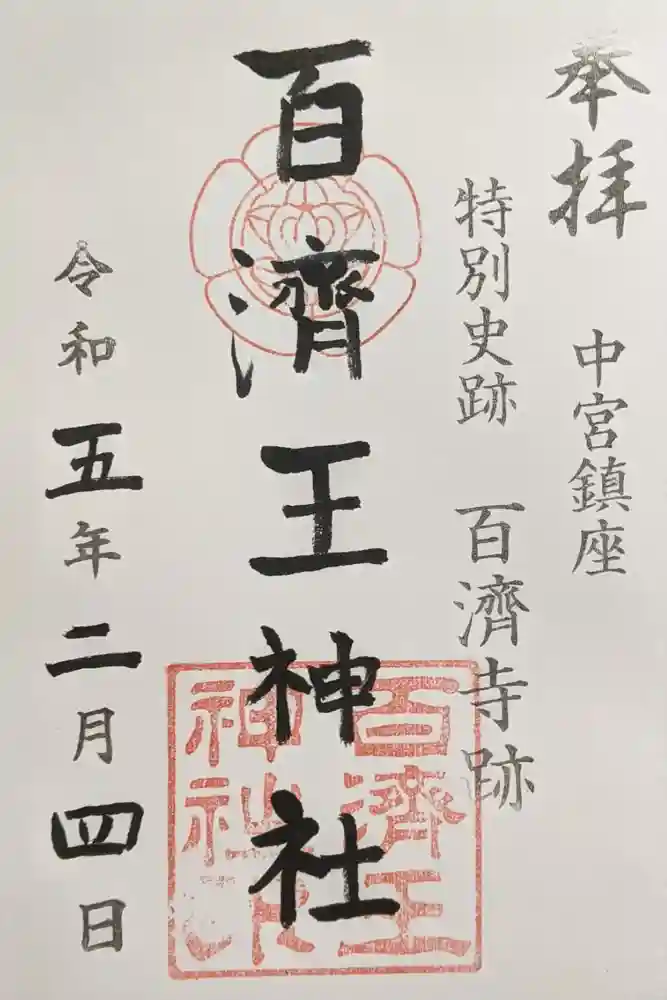 奉拝
中宮鎮座
特別史跡 百濟寺跡
百濟王神社
百濟王
神社印
令和五年二月四日